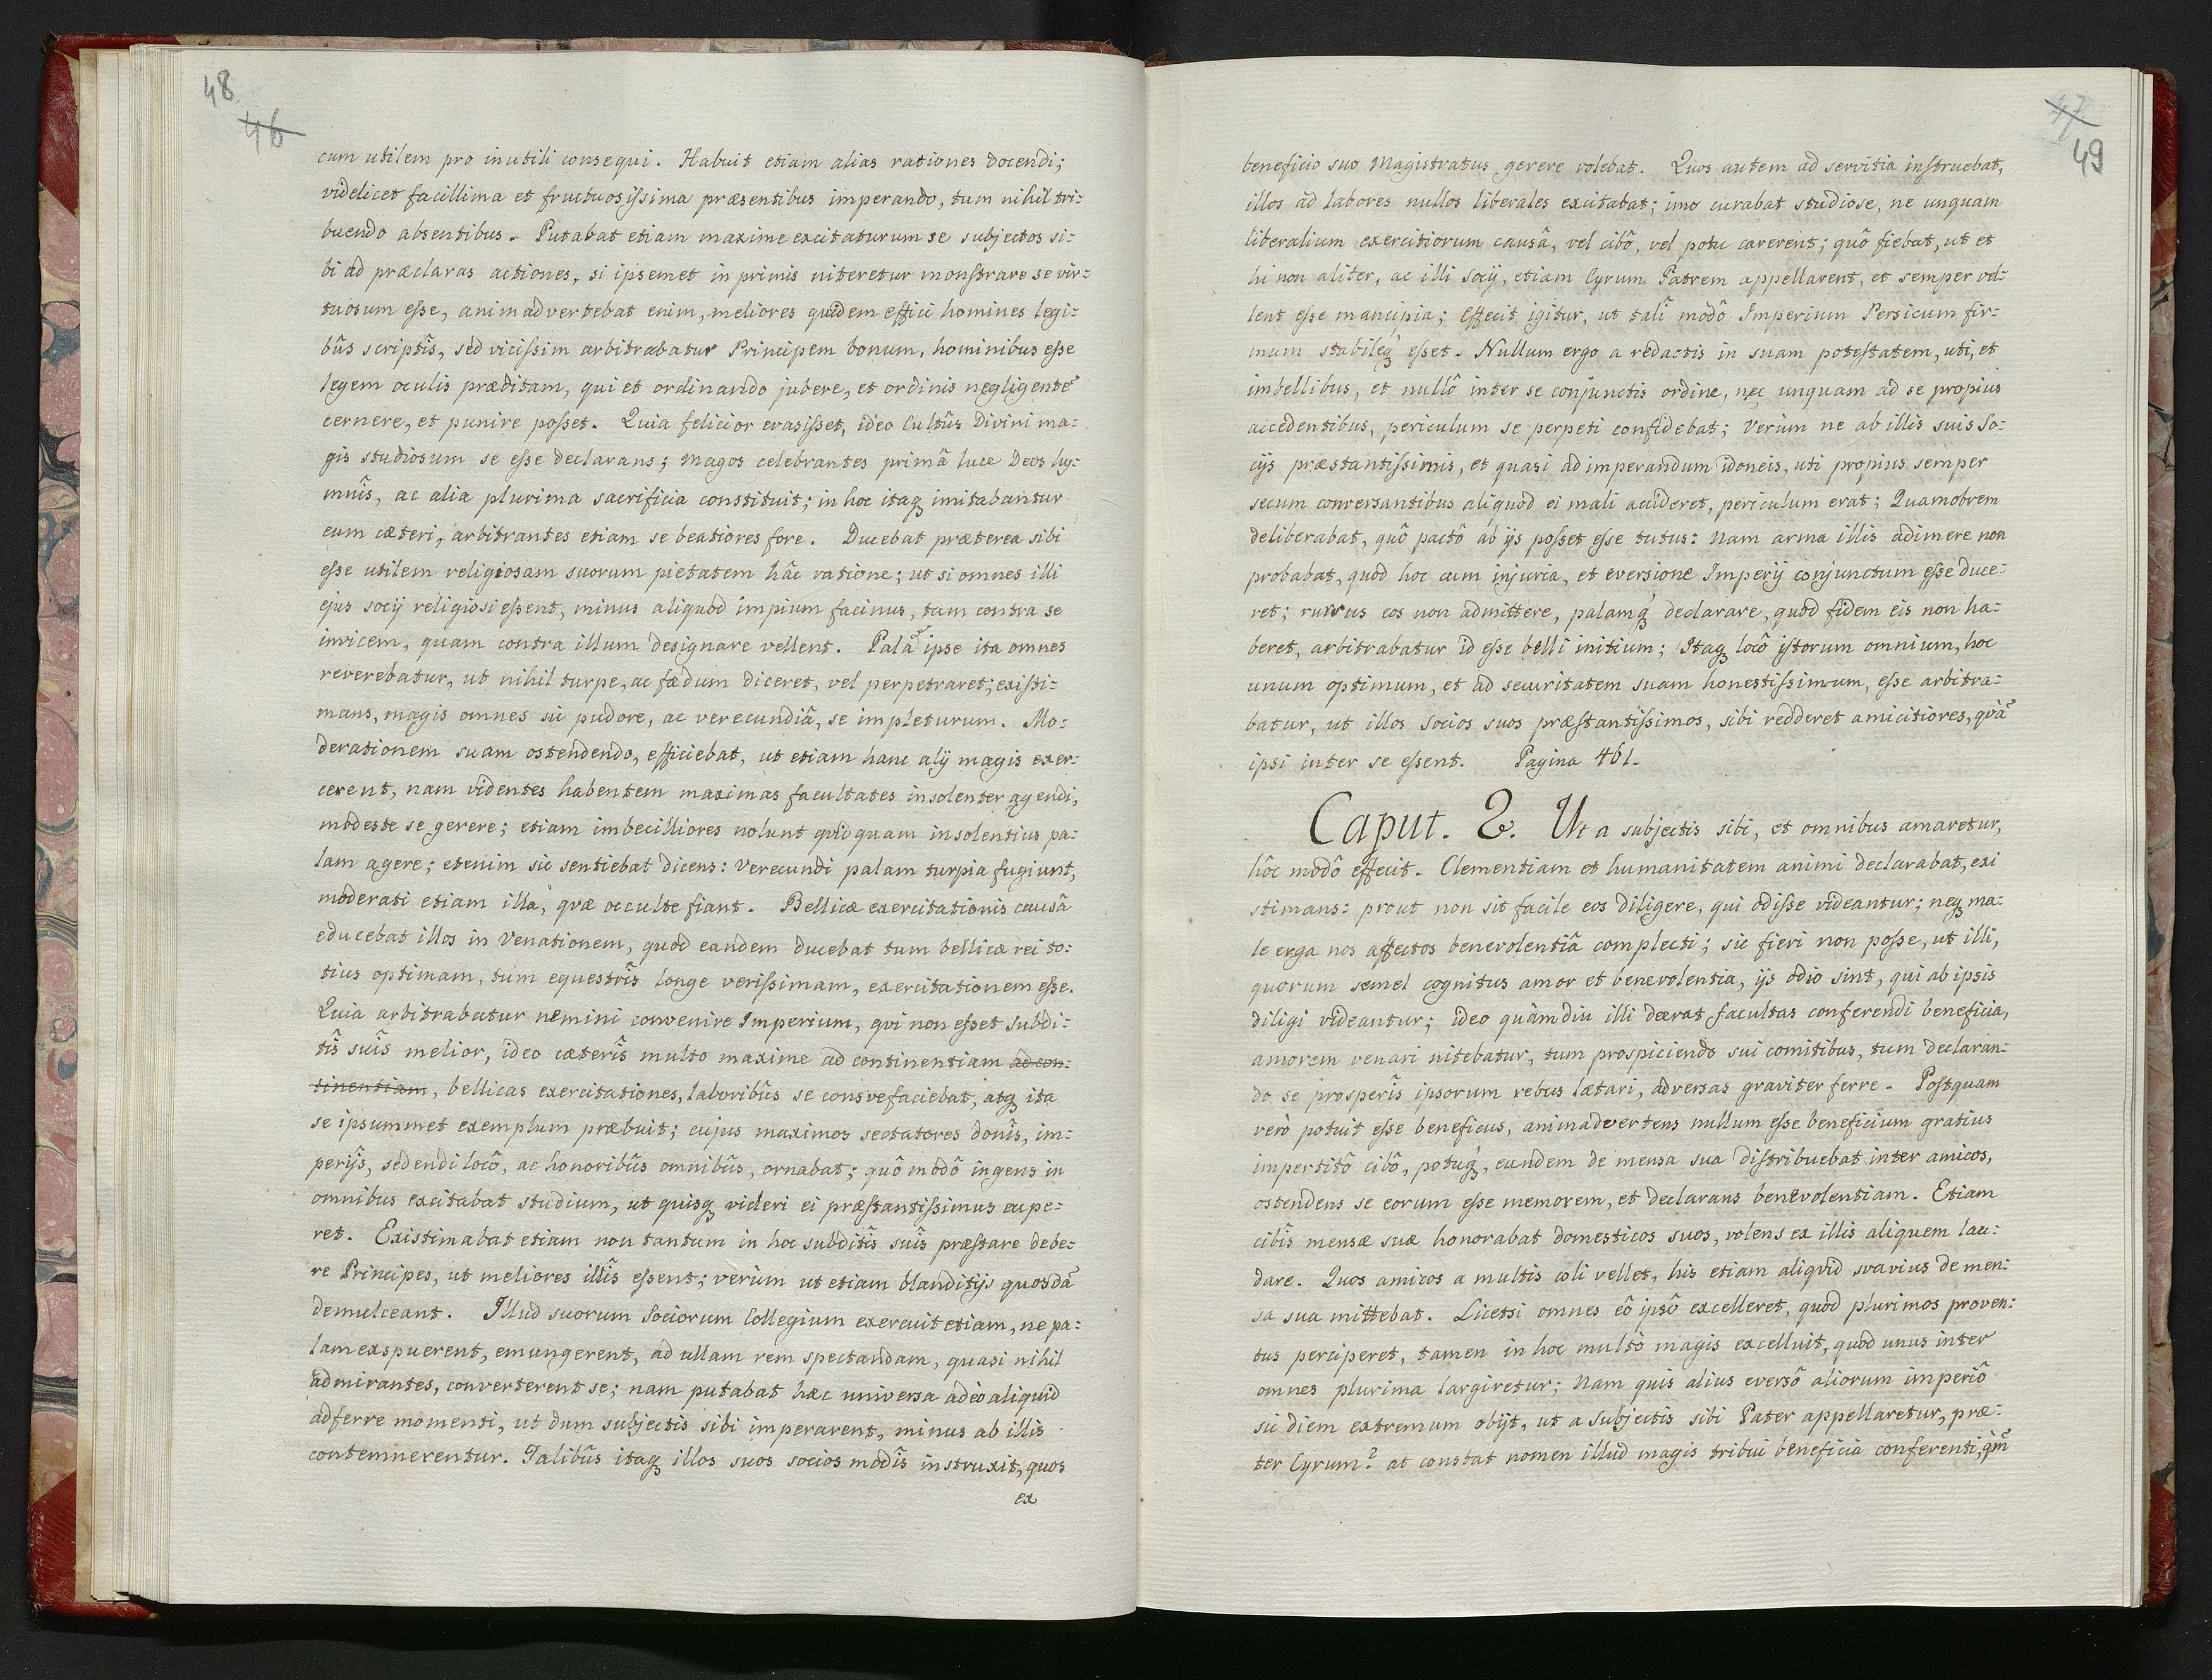 48
46
cum utilem pro inutili consequi. Habuit etiam alias rationes docendi;
videlicet facillima et fructuosissima præsentibus imperando, tum nihil tri:
buendo absentibus. Putabat etiam maxime excitaturum se subjectos si:
bi ad præclaras actiones, si ipsemet in primis niteretur monstrare se vir:
tuosum esse, animadvertebat enim, meliores quidem effici homines legi:
bûs scriptîs, sed vicissim arbitrabatur Principem bonum, hominibus esse
legem oculis præditam, qui et ordinando jubere, et ordinis negligentẽ
cernere, et punire posset. Quia felicior evasisset, ideo Cultûs Divini ma:
gis studiosum se esse declarans; Magos celebrantes primâ luce Deos hy:
mnîs, ac alia plurima sacrificia constituit; in hoc itaq, imitabantur
eum cæteri, arbitrantes etiam se beatiores fore. Ducebat præterea sibi
esse utilem religiosam suorum pietatem hâc ratione; ut si omnes illi
ejus socij religiosi essent, minus aliquod impium facinus, tam contra se
invicem, quam contra illum designare vellent. Palã ipse ita omnes
reverebatur, ut nihil turpe, ac fædum diceret, vel perpetraret; existi:
mans, magis omnes sic pudore, ac verecundiâ, se impleturum. Mo:
derationem suam ostendendo, efficiebat, ut etiam hanc alij magis exer:
cerent, nam videntes habentem maximas facultates insolenter agendi,
modeste se gerere; etiam imbecilliores nolunt quidquam insolentius pa:
lam agere; etenim sic sentiebat dicens: Verecundi palam turpia fugiunt,
moderati etiam illa, quæ occulte fiant. Bellicæ exercitationis causâ
educebat illos in Venationem, quod eandem ducebat tum bellicæ rei to:
tius optimam, tum equestrîs longe verissimam, exercitationem esse.
Quia arbitrabatur nemini convenire Imperium, qui non esset subdi:
tîs suîs melior, ideo cæterîs multo maxime ad continentiam ad con:
tinentiam, bellicas exercitationes, laboribûs se consvefaciebat, atq, ita
se ipsummet exemplum præbuit; cujus maximos sectatores donîs, im:
perijs, sedendi locô, ac honoribûs omnibûs, ornabat; quô modô ingens in
omnibus excitabat studium, ut quisq, videri ei præstantissimus cupe:
ret. Existimabat etiam non tantum in hoc subditîs suîs præstare debe:
re Principes, ut meliores illîs essent; verùm ut etiam blanditijs quosdã
demulceant. Illud suorum Sociorum Collegium exercuit etiam, ne pa:
lam exspuerent, emungerent, ad ullam rem spectandam, quasi nihil
admirantes, converterent se; nam putabat hæc universa adeò aliquid
adferre momenti, ut dum subjectis sibi imperarent, minus ab illis
contemnerentur. Talibûs itaq, illos suos socios modîs instruxit, quos
ex
47
49
beneficio suo Magistratus gerere volebat. Quos autem ad servitia instruebat,
illos ad labores nullos liberales excitabat; imo curabat studiose, ne unquam
liberalium exercitiorum causâ, vel cibô, vel potu carerent; quô fiebat, ut et
hi non aliter, ac illi socij, etiam Cyrum Patrem appellarent, et semper vel:
lent esse mancipia; Effecit igitur, ut talî modô Imperium Persicum fir:
mum stabileq, esset. Nullum ergo a redactis in suam potestatem, uti, et
imbellibus, et nullô inter se conjunctis ordine, nec unquam ad se propius
accedentibus, periculum se perpeti confidebat; Verùm ne ab illis suis So:
cijs præstantissimis, et quasi ad imperandum idoneis, uti propius semper
secum conversantibus aliquod ei mali accideret, periculum erat; Quamobrem
deliberabat, quô pactô ab ijs posset esse tutus: Nam arma illis adimere non
probabat, quod hoc cum injuria, et eversione Imperij conjunctum esse duce:
ret; rursus eos non admittere, palamq, declarare, quod fidem eis non ha:
beret, arbitrabatur id esse belli initium; Itaq, locô istorum omnium, hoc
unum optimum, et ad securitatem suam honestissimum, esse arbitra:
batur, ut illos socios suos præstantissimos, sibi redderet amicitiores, qũã
ipsi inter se essent. Pagina 461.
Caput. 2. Ut a subjectis sibi, et omnibus amaretur,
hôc modô effecit. Clementiam et humanitatem animi declarabat, exi
stimans: prout non sit facile eos diligere, qui odisse videantur; neq, ma:
le erga nos affectos benevolentiâ complecti; sic fieri non posse, ut illi,
quorum semel cognitus amor et benevolentia, ijs odio sint, qui ab ipsis
diligi videantur; ideo quàmdiu illi deerat facultas conferendi beneficia,
amorem venari nitebatur, tum prospiciendo sui comitibus, tum declaran:
do se prosperîs ipsorum rebus lætari, adversas graviter ferre. Postquam
verò potuit esse beneficus, animadvertens nullum esse beneficium gratius
impertitô cibô, potuq, eundem de mensa sua distribuebat inter amicos,
ostendens se eorum esse memorem, et declarans benevolentiam. Etiam
cibîs mensæ suæ honorabat domesticos suos, volens ex illis aliquem lau:
dare. Quos amicos a multis coli vellet, his etiam aliqvid svavius de men:
sa sua mittebat. Licetsi omnes eô ipsô excelleret, quod plurimos proven:
tus perciperet, tamen in hoc multò magis excelluit, quod unus inter
omnes plurima largiretur; Nam quis alius eversô aliorum imperiô
sic diem extremum obijt, ut a subjectis sibi Pater appellaretur, præ:
ter Cyrum? at constat nomen illud magis tribui beneficia conferenti, qm̃